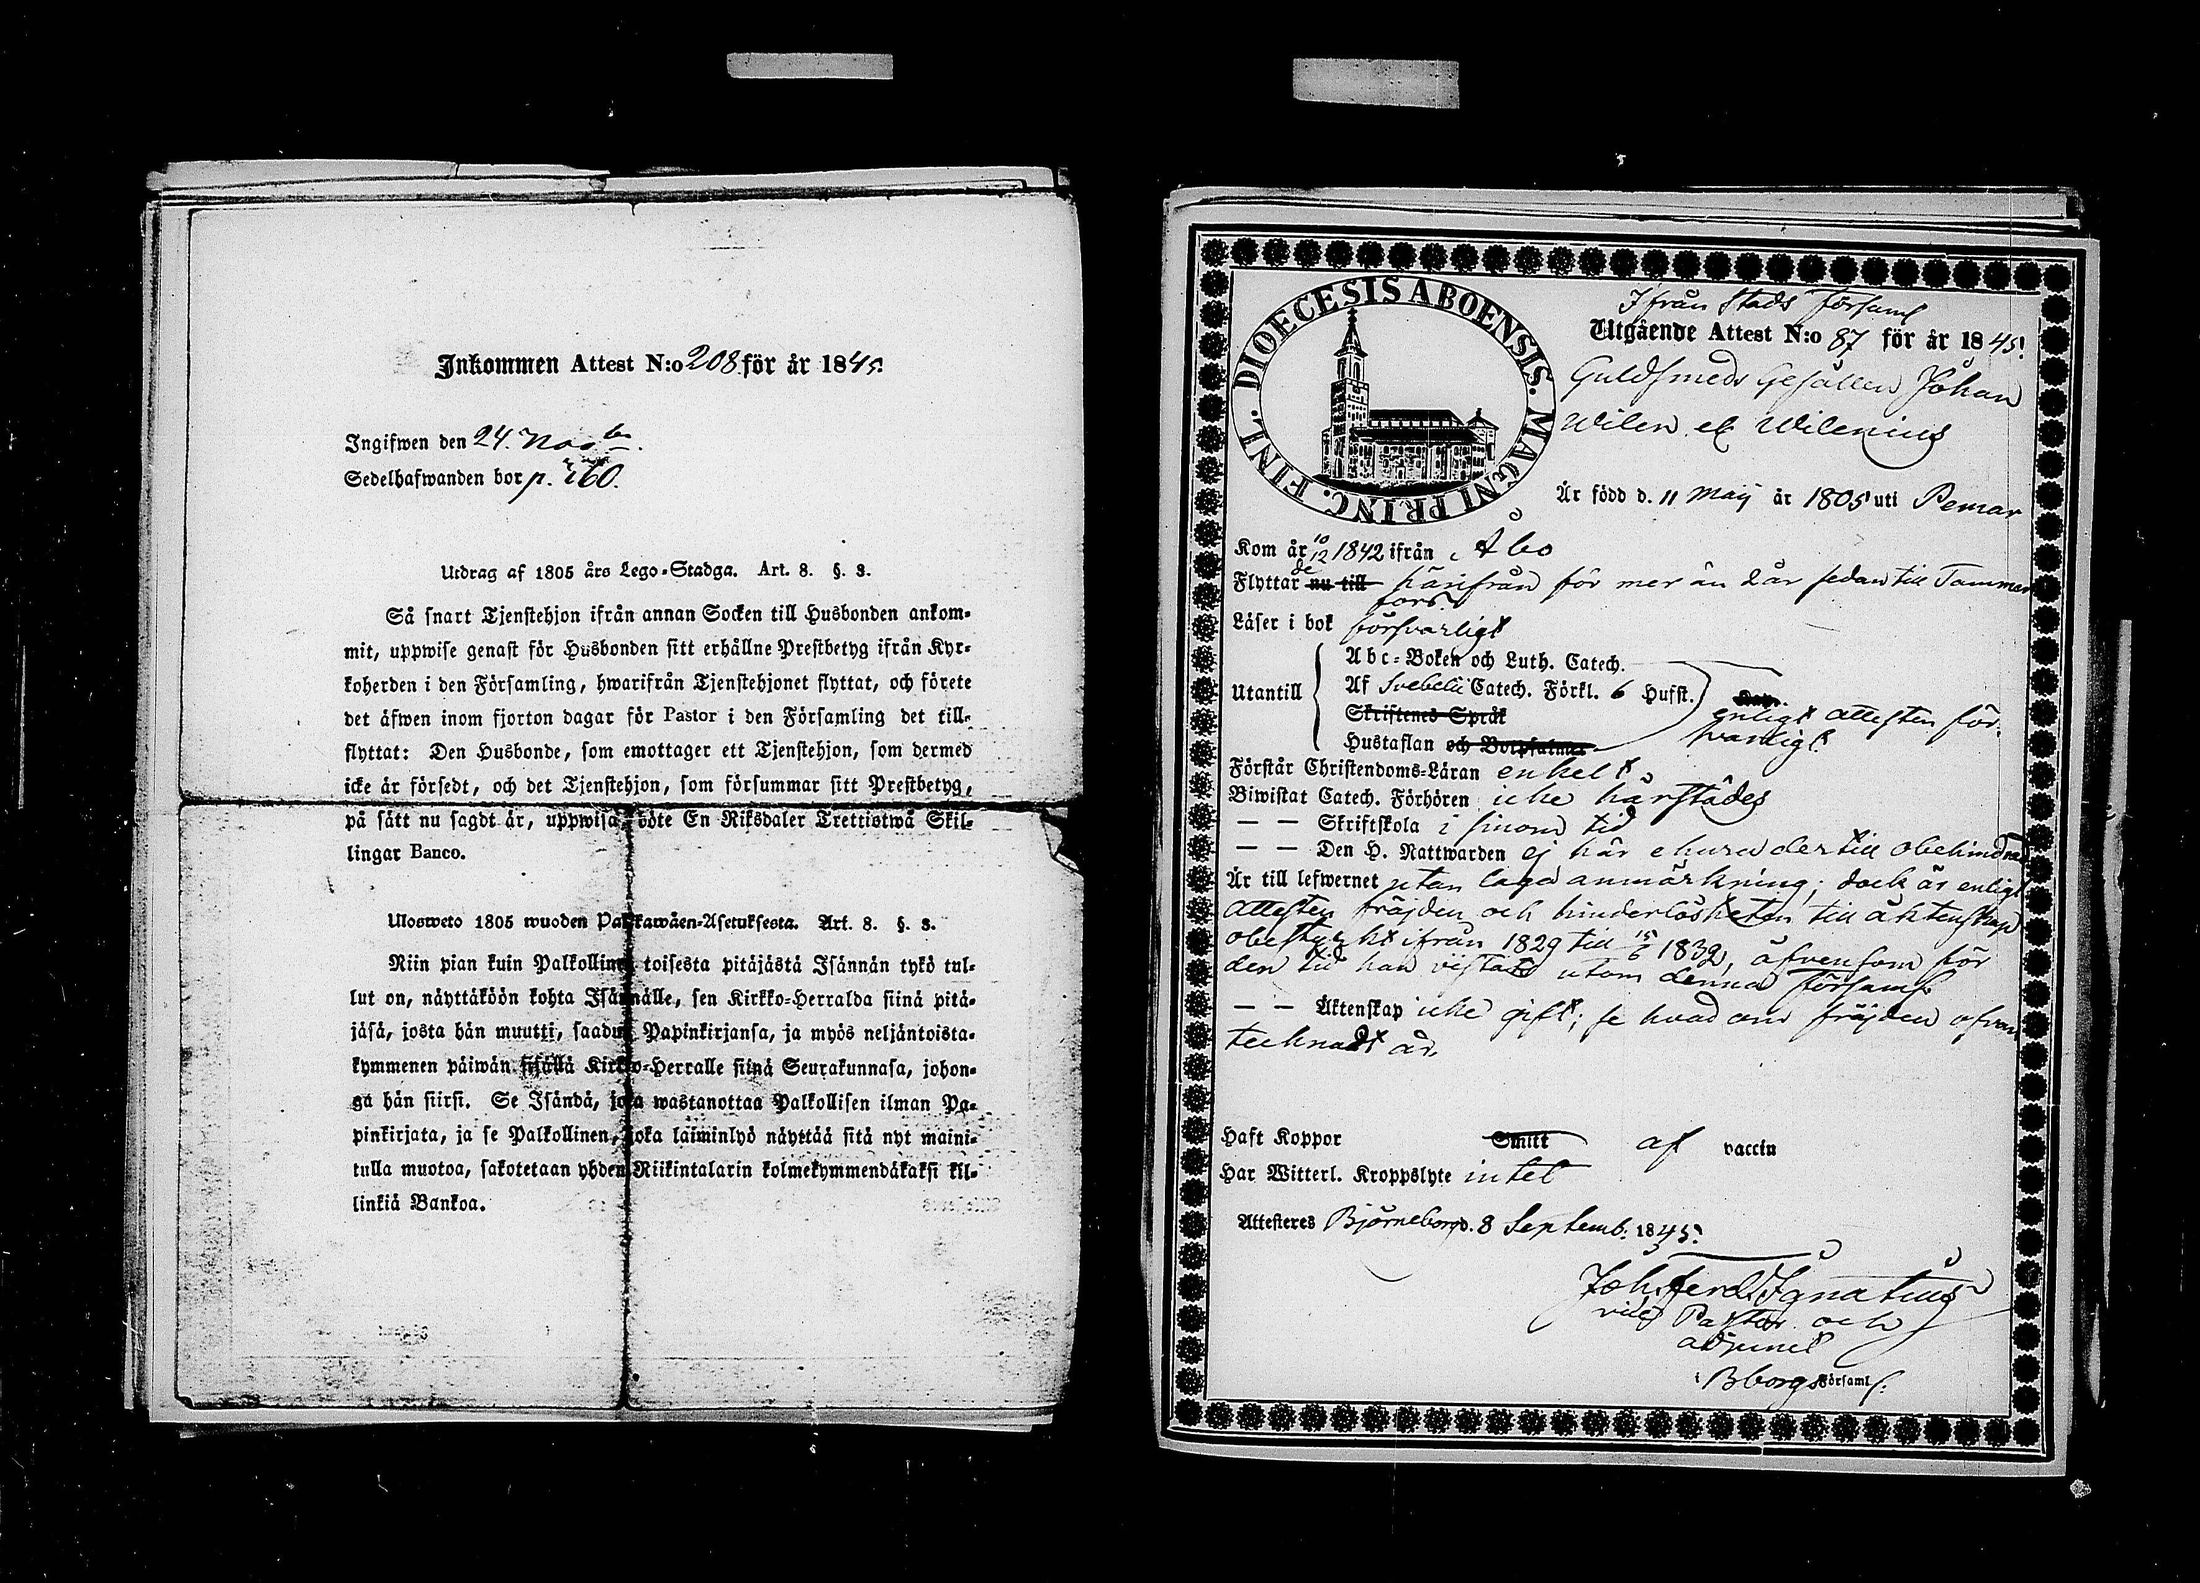 Inkommen Attest N:o 208 för år 1845.
Ingifwen den 24. Novbr.
Sedelhafwanden bor p. 260.
Utdrag af 1805 års Lego-Stadga. Art. 8. §. 3.
Så snart Tjenstehjon ifrån annan Socken till Husbonden ankom-
mit, uppwise genast för Husbonden sitt erhållne Prestbetyg ifrån Kyr-
koherden i den Församling, hwarifrån Tjenstehjonet flyttat, och förete
det äfwen inom fjorton dagar för Pastor i den Församling det till-
flyttat: Den Husbonde, som emottager ett Tjenstehjon, som dermed
icke är försedt, och det Tjenstehjon, som försummar sitt Prestbetyg,
på sätt nu sagdt är, uppwisa, böte En Riksdaler Trettiotwå Skil-
lingar Banco.
Ulosweto 1805 wuoden Palkkawäen-Asetuksesta. Art. 8. §. 3.
Niin pian kuin Palkollinen toisesta pitäjästä Isännän tykö tul-
lut on, näyttäköön kohta Isännälle, sen Kirkko-Herralda siinä pitä-
jäsä, josta hän muutti, saadun Papinkirjansa, ja myös neljäntoista-
kymmenen päiwän sisällä Kirkko-Herralle siinä Seurakunnasa, johon-
ga hän siirsi. Se Isändä, joka wastanottaa Palkollisen ilman Pa-
pinkirjata, ja se Palkollinen, joka laiminlyö näyttää sitä nyt maini-
tulla muotoa, sakotetaan yhden Riikintalarin kolmekymmendäkaksi kil-
linkiä Bankoa.
DIOECESIS ABOENSIS. MAGNI PRINC. FINL.
Ifrån Stads Församl
Utgående Attest N:o 87 för år 1845.
Guldsmeds Gesällen Johan
Wilen el Wilenius
Är född d. 11 Maij år 1805 uti Pemar
Kom år 10/12 1842 ifrån Åbo
Flyttade nu till härifrån för mer än 2 år sedan till Tammer
fors.
Läser i bok försvarligt
Abc-Boken och Luth. Catech.
Utantill Af Svebelii Catech. Förkl. 6 Hufst. enligt attesten för-
Skriftenes Språk
Hustaflan och Botpsalmer varligt
Förstår Christendoms-Läran enkelt
Biwistat Catech. Förhören icke härstädes
— — Skriftskola i sinom tid
— — Den H. Nattwarden ej här ehuru dertill obehindrad
Är till lefwernet utan laga anmärkning; dock är enligt
attesten fräjden och hinderlösheten till äktenskap
obestyrkt ifrån 1829 till 15/6 1832, äfvensom för
den tid han vistats utom denna Församl.
— — Äktenskap icke gift; se hvad om fräjden ofvan
tecknadt är.
Haft Koppor Smitt af vaccin
Har Witterl. Kroppslyte intet
Attesteres Björneborg d. 8 Septemb. 1845.
Joh. Ferd. Ignatius
vice Pastor och
adjunct
i Bborgs Församl.